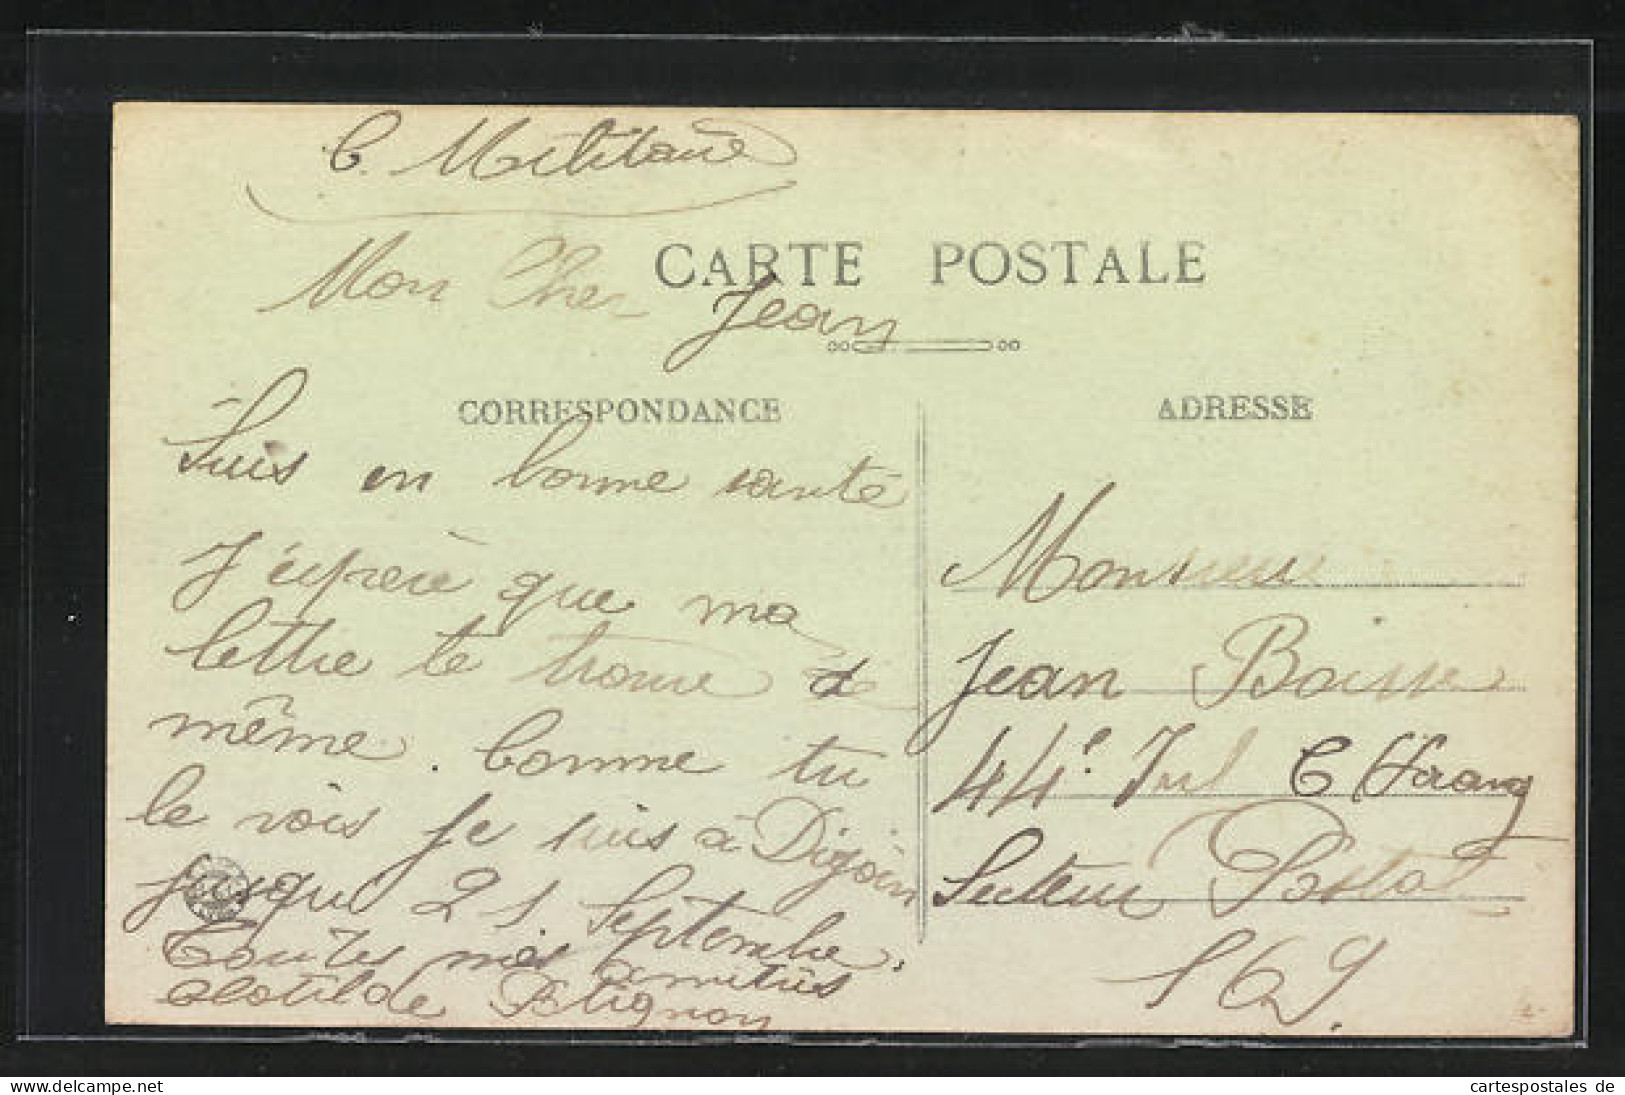 C. Militaire
CARTE POSTALE
Mon Cher Jean
CORRESPONDANCE
Suis en bonne santé
J'éspère que ma
lettre te trouve de
même. Comme tu
le vois je suis à Digoin
jusqu 21 Septembre.
Toutes mes amitiés
Clotilde Petignon
ADRESSE
Monsieur
Jean Boisse
44e Inf C
Secteur Postal
169.
cartespostales de